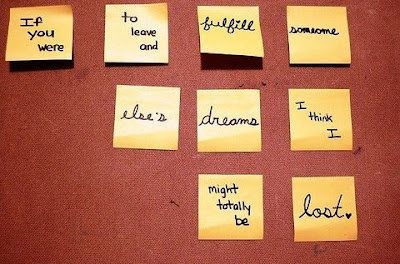 If
you
were
to
leave
and
fulfill
someone
else's
dreams
I
think
I
might
totally
be
lost.